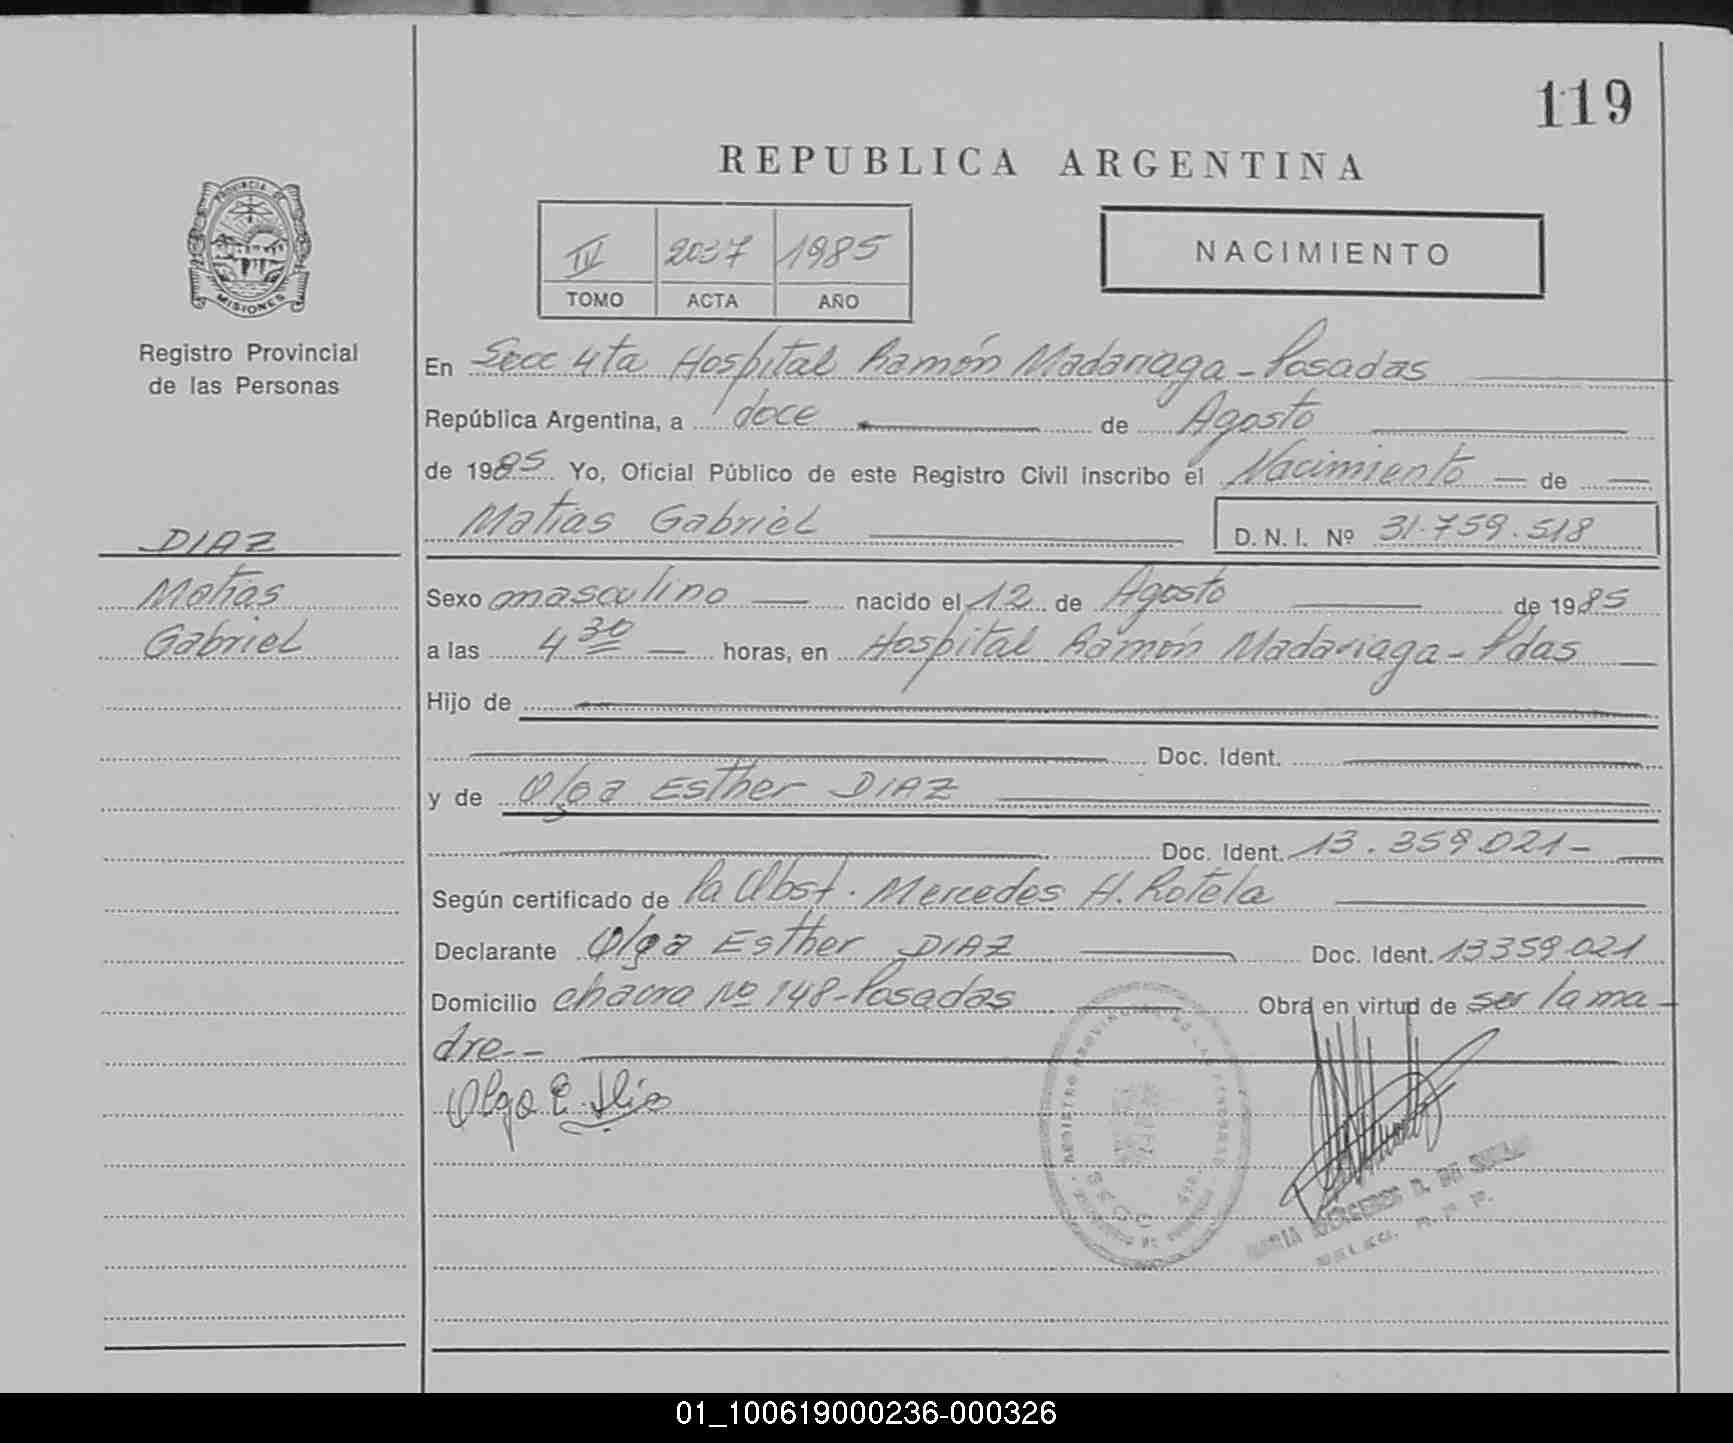 119
REPUBLICA ARGENTINA
PROVINCIA DE
MISIONES
IV 2037 1985
TOMO ACTA AÑO
NACIMIENTO
Registro Provincial
de las Personas
En Secc 4ta Hospital Ramón Madariaga - Posadas
República Argentina, a doce de Agosto
de 1985 Yo, Oficial Público de este Registro Civil inscribo el Nacimiento de
Matias Gabriel D. N. I. Nº 31.759.518
DIAZ
Matias
Gabriel
Sexo masculino nacido el 12 de Agosto de 1985
a las 4 30 horas, en Hospital Ramón Madariaga - Pdas
Hijo de
Doc. Ident.
y de Olga Esther DIAZ
Doc. Ident. 13.359.021-
Según certificado de la Obst. Mercedes H. Rotela
Declarante Olga Esther DIAZ Doc. Ident. 13359.021
Domicilio chacra Nº 148-Posadas Obra en virtud de ser la ma-
dre--
Olga E. Díaz
REGISTRO PROVINCIAL DE LAS PERSONAS
MARIA MERCEDES R. DE
R. P. P.
01_100619000236-000326